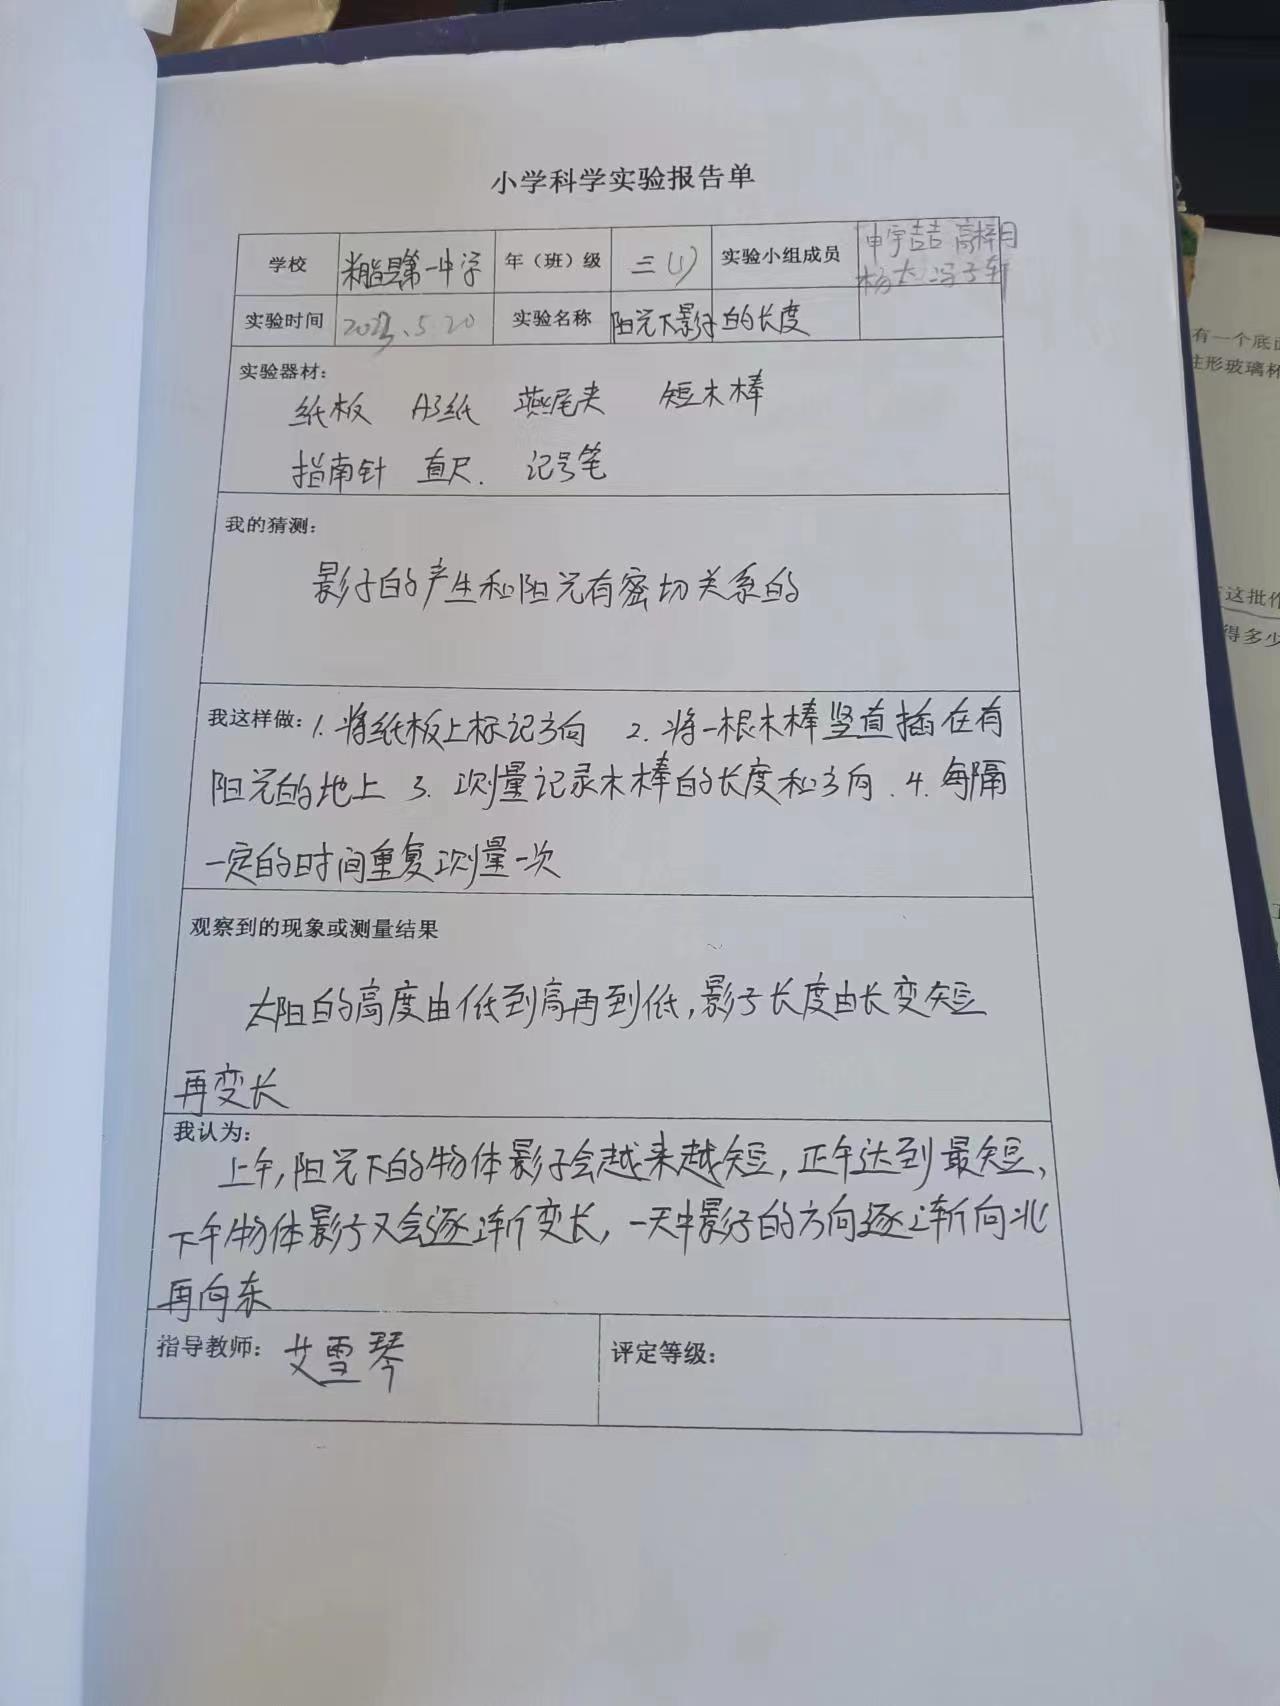 小学科学实验报告单
学校 米脂县第一中学 年（班）级 三（1） 实验小组成员 申宇喆 高梓月
杨大 冯子轩
实验时间 2023.5.20 实验名称 阳光下影子的长度
实验器材：
纸板 A3纸 燕尾夹 短木棒
指南针 直尺. 记号笔
我的猜测：
影子的产生和阳光有密切关系的
我这样做：1.将纸板上标记方向 2.将一根木棒竖直插在有
阳光的地上 3.测量记录木棒的长度和方向.4.每隔
一定的时间重复测量一次
观察到的现象或测量结果
太阳的高度由低到高再到低，影子长度由长变短
再变长
我认为：
上午，阳光下的物体影子会越来越短，正午达到最短，
下午物体影子又会逐渐变长，一天中影子的方向逐渐向北
再向东
指导教师：艾雪琴 评定等级：
有一个底面
柱形玻璃杯
这批作
得多少